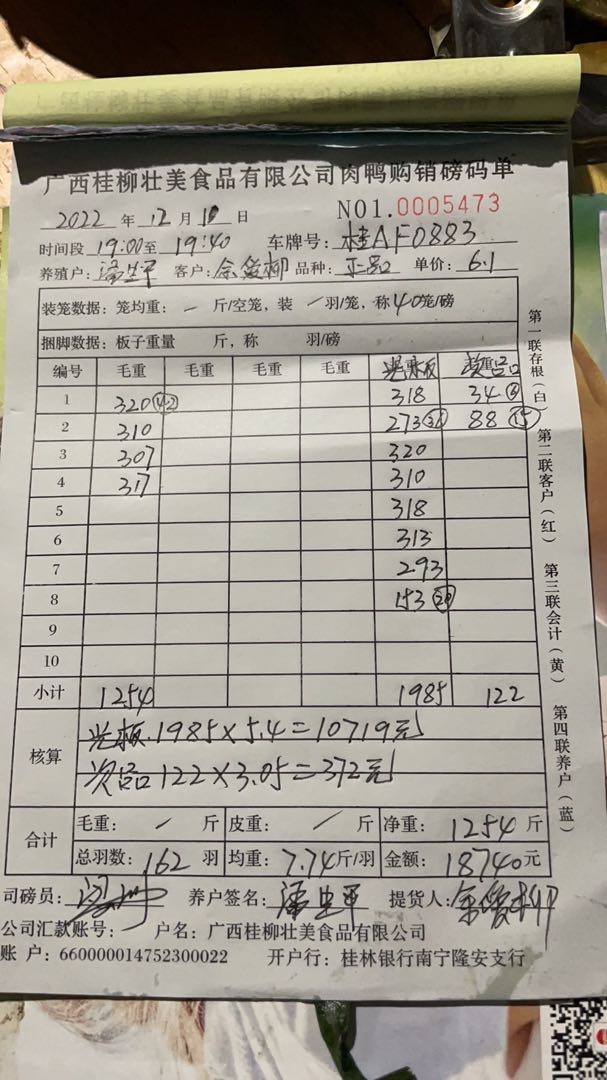 广西桂柳壮美食品有限公司肉鸭购销磅码单
2022 年 12 月 10 日 NO1.0005473
时间段 19:00至 19:40 车牌号: 桂AF0883
养殖户: 潘生平 客户: 余俊柳 品种: 正品 单价: 6.1
装笼数据: 笼均重: — 斤/空笼, 装 — 羽/笼, 称 40 笼/磅
捆脚数据: 板子重量 斤, 称 羽/磅
编号 毛重 毛重 毛重 毛重 光膘板 次品
1 320 (42) 318 34 (6)
2 310 273 (36) 88 (15)
3 307 320
4 317 310
5 318
6 313
7 293
8 153 (20)
9
10
小计 1254 1985 122
核算 光板 1985×5.4=10719元
次品 122×3.05=372元
合计 毛重: / 斤 皮重: / 斤 净重: 1254 斤
总羽数: 162 羽 均重: 7.74 斤/羽 金额: 18740 元
司磅员: 养户签名: 潘生平 提货人: 余俊柳
公司汇款账号: 户名: 广西桂柳壮美食品有限公司
账 户: 660000014752300022 开户行: 桂林银行南宁隆安支行
第一联存根(白) 第二联客户(红) 第三联会计(黄) 第四联养户(蓝)